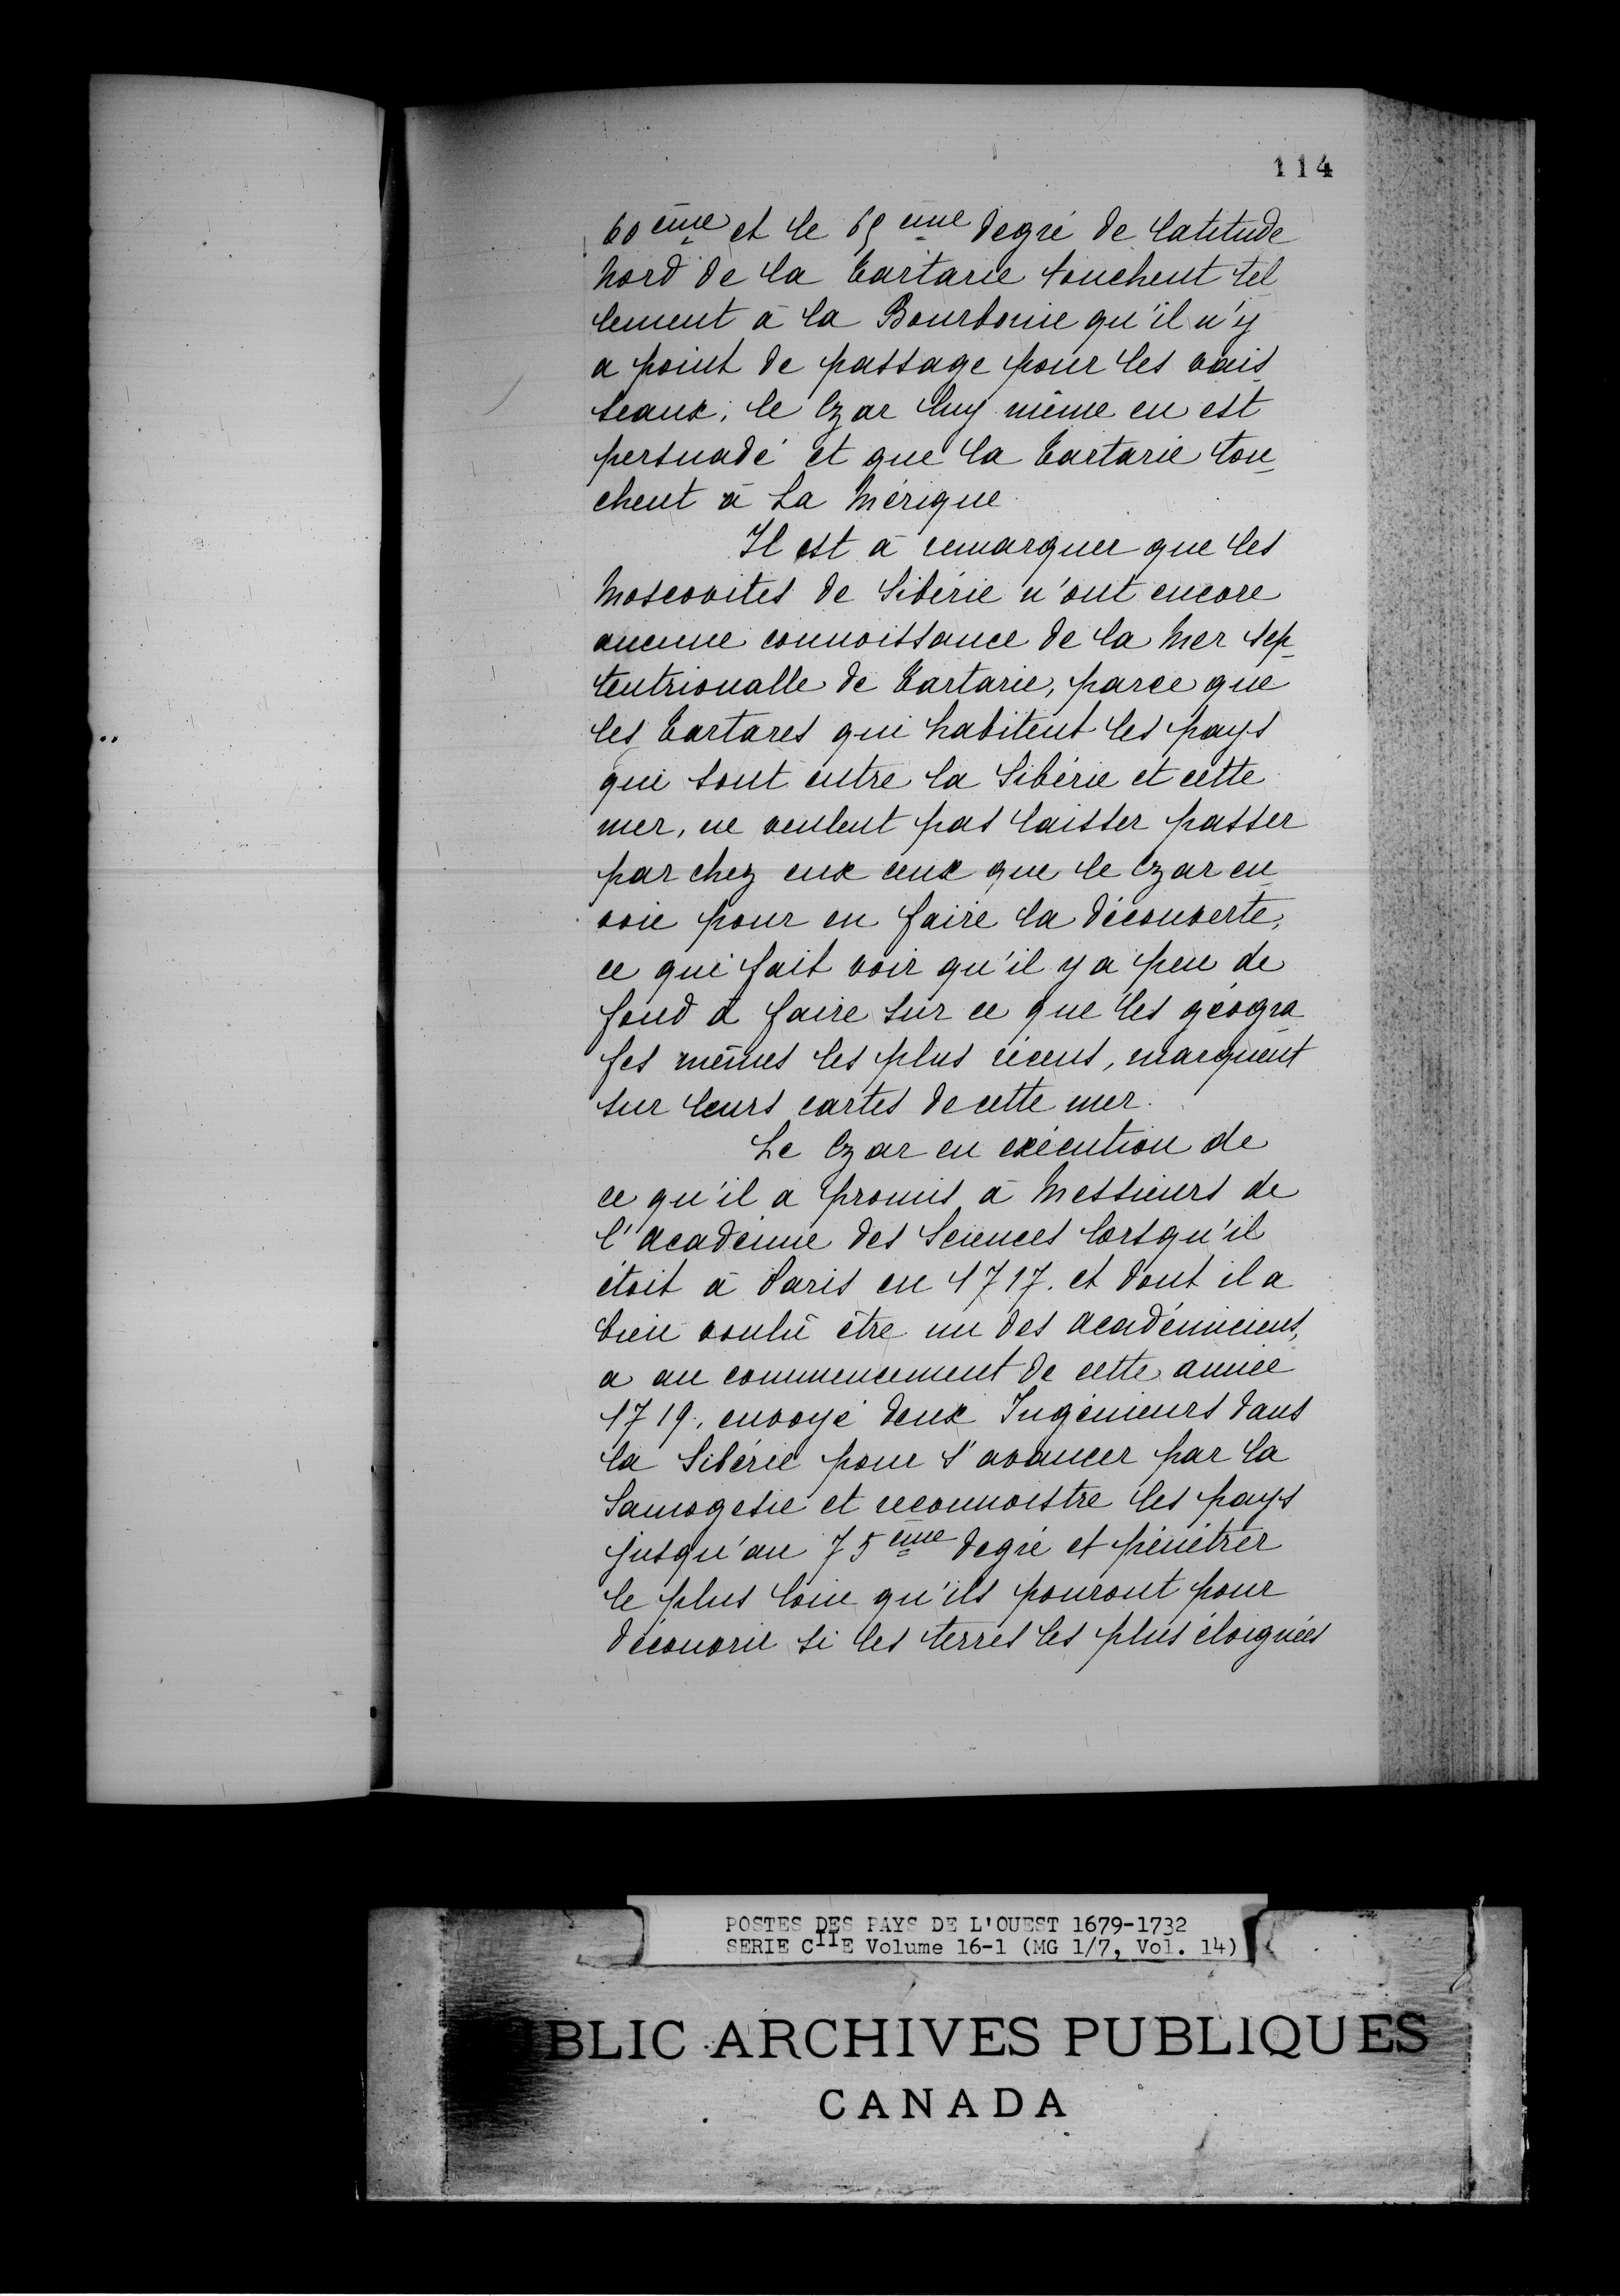 114
60ème et le 65ème degré de latitude
Nord de la Tartarie touchent tel
lement à la Bourbonie qu'il n'y
a point de passage pour les vais
seaux; le Czar luy même en est
persuadé et que la Tartarie tou
chent à La Mérique
Il est à remarquer que les
Moscovites de Sibérie n'ont encore
aucune connoissance de la Mer Sep
tentrionalle de Tartarie, parce que
les Tartares qui habitent les pays
qui sont entre la Sibérie et cette
mer, ne veulent pas laisser passer
par chez eux ceux que le Czar en
voie pour en faire la découverte,
ce qui fait voir qu'il y a peu de
fond à faire sur ce que les géogra
fes mêmes les plus récens, marquent
sur leurs cartes de cette mer.
Le Czar en exécution de
ce qu'il a promis à Messieurs de
l'Académie des Sciences lorsqu'il
étoit à Paris en 1717. et dont il a
bien voulû être un des Académiciens,
a au commencement de cette année
1719. envoyé deux Ingénieurs dans
la Sibérie pour s'avancer par la
Samogesie et reconnoistre les pays
jusqu'au 75ème degré et pénétrer
le plus loin qu'ils pouront pour
découvrir si les terres les plus éloignées
POSTES DES PAYS DE L'OUEST 1679-1732
SERIE CIIE Volume 16-1 (MG 1/7, Vol. 14)
BLIC ARCHIVES PUBLIQUES
CANADA